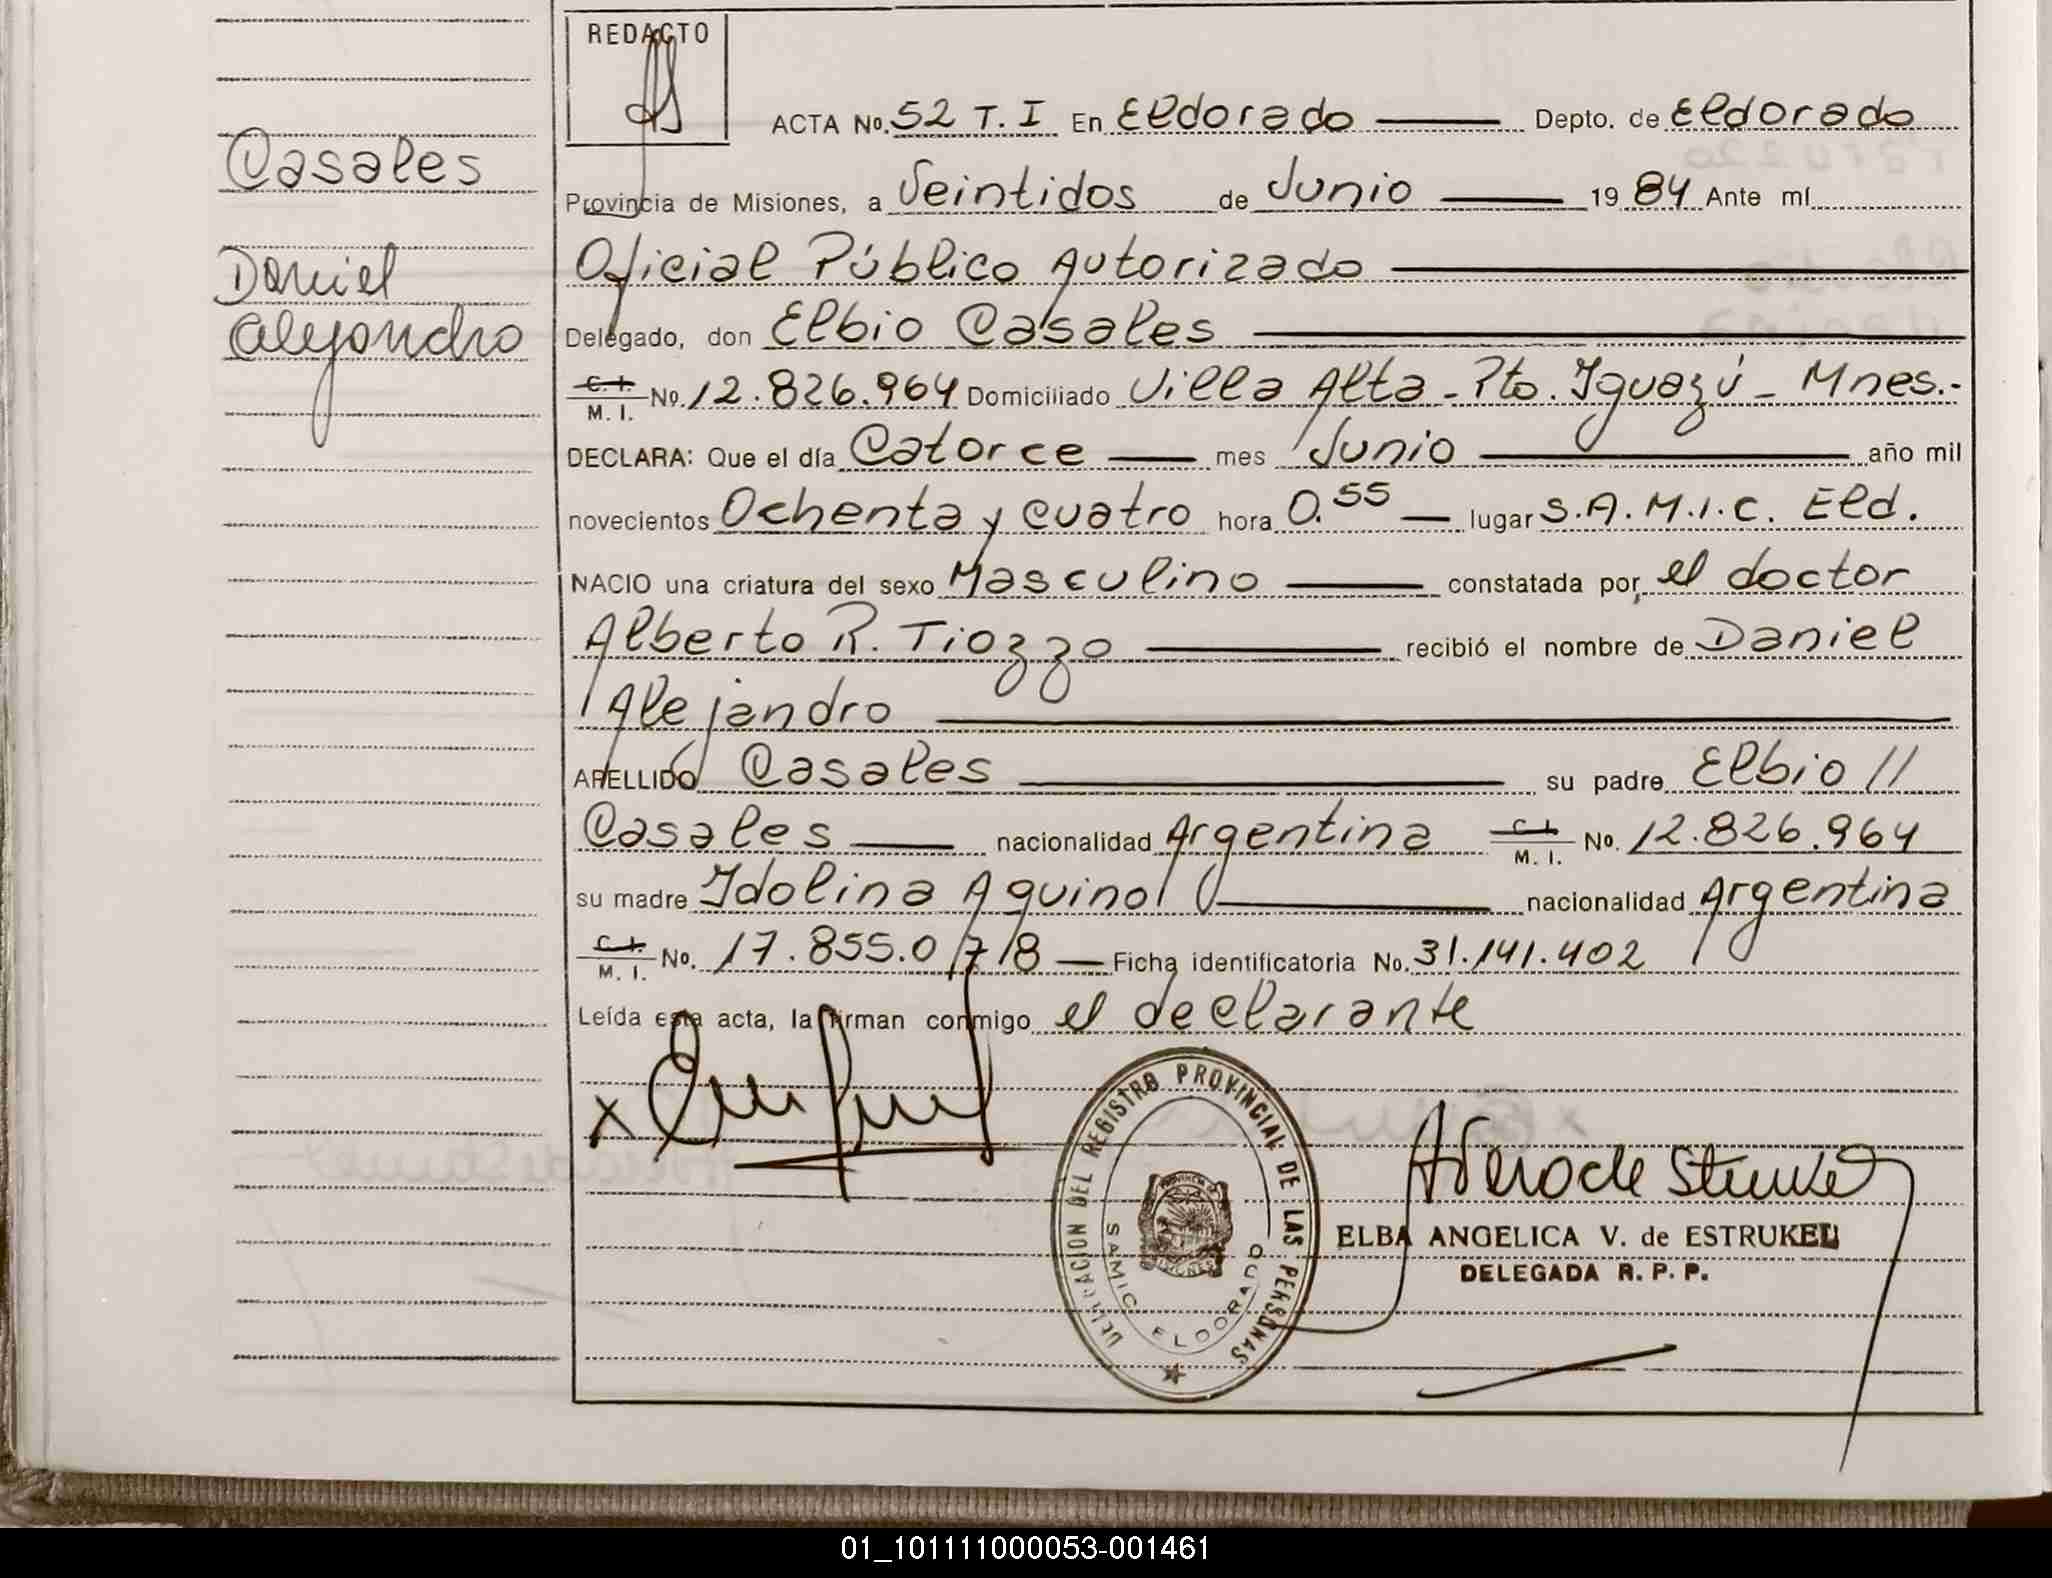 REDACTO
ACTA No. 52 T. I En Eldorado Depto. de Eldorado
Casales
Provincia de Misiones, a Veintidos de Junio 1984 Ante mí
Oficial Público Autorizado
Daniel
Alejandro
Delegado, don Elbio Casales
C. I. M. I. No. 12.826.964 Domiciliado Villa Alta - Pto. Iguazú - Mnes.-
DECLARA: Que el día Catorce mes Junio año mil
novecientos Ochenta y cuatro hora 0.55 lugar S.A.M.I.C. Eld.
NACIO una criatura del sexo Masculino constatada por, el doctor
Alberto R. Tiozzo recibió el nombre de Daniel
Alejandro
APELLIDO Casales su padre Elbio //
Casales nacionalidad Argentina C. I. M. I. No. 12.826.964
su madre Idolina Aquino nacionalidad Argentina
C. I. M. I. No. 17.855.078 Ficha identificatoria No. 31.141.402
Leída esta acta, la firman conmigo el declarante
x
DELEGACION DEL REGISTRO PROVINCIAL DE LAS PERSONAS
PROVINCIA DE
MISIONES
SAMIC ELDORADO
ELBA ANGELICA V. de ESTRUKEL
DELEGADA R. P. P.
01_101111000053-001461